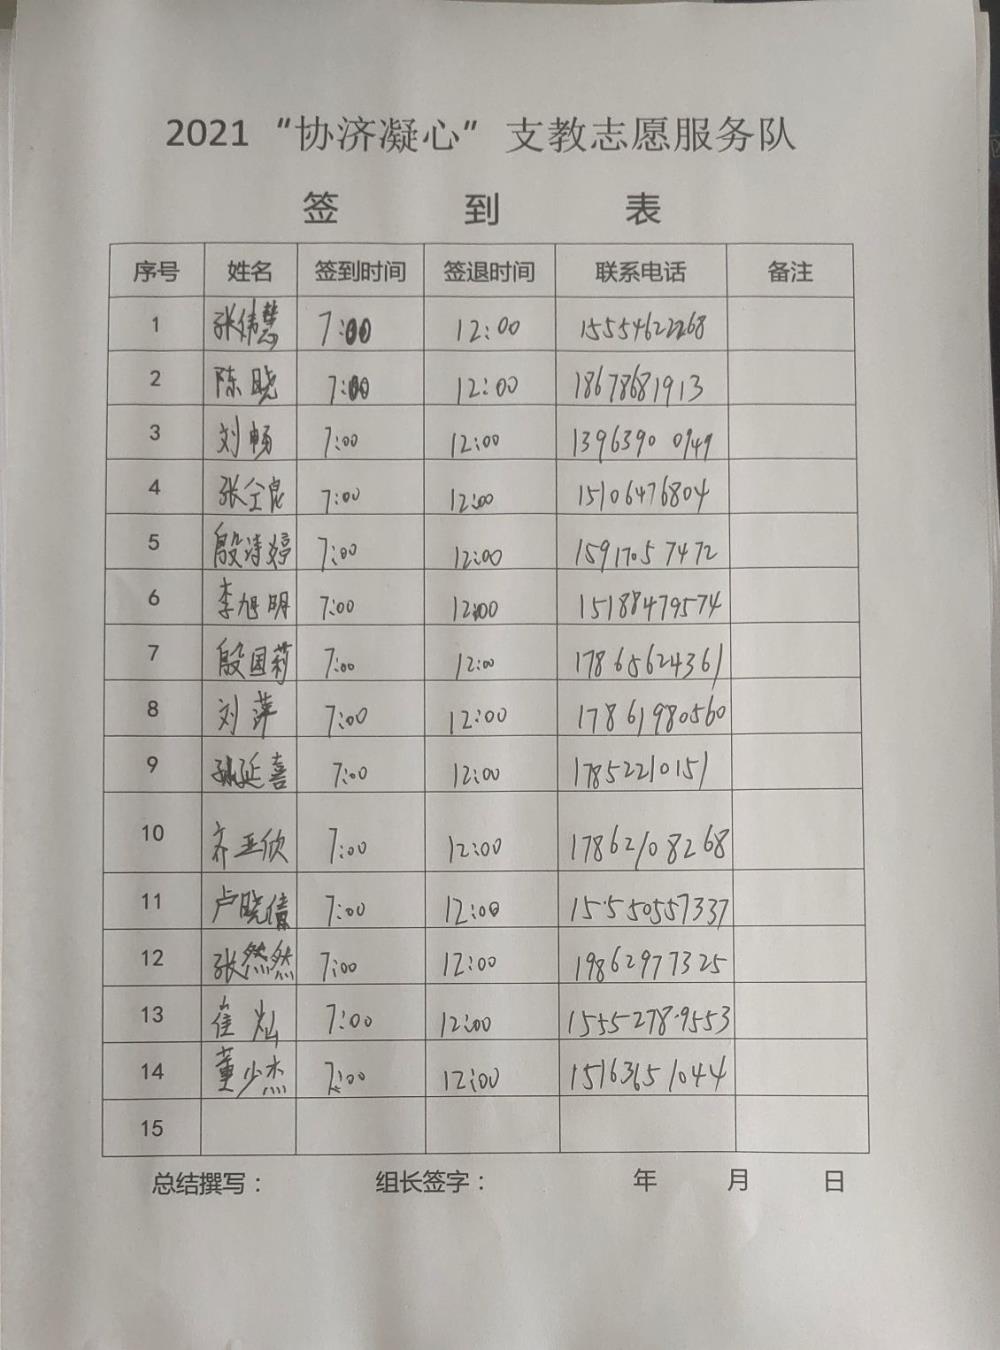 2021 “协济凝心” 支教志愿服务队
签 到 表
序号 姓名 签到时间 签退时间 联系电话 备注
1 张伟慧 7:00 12:00 15554622268
2 陈晓 7:00 12:00 18678681913
3 刘畅 7:00 12:00 1396390 0949
4 张全昆 7:00 12:00 15106476804
5 殷诗婷 7:00 12:00 1591705 7472
6 李旭明 7:00 12:00 15188479574
7 殷国莉 7:00 12:00 17865624361
8 刘萍 7:00 12:00 17861980560
9 张延喜 7:00 12:00 17852210151
10 齐亚欣 7:00 12:00 17862108268
11 卢晓倩 7:00 12:00 15550557337
12 张然然 7:00 12:00 19862977325
13 崔灿 7:00 12:00 15552789553
14 董少杰 7:00 12:00 15163651044
15
总结撰写： 组长签字： 年 月 日